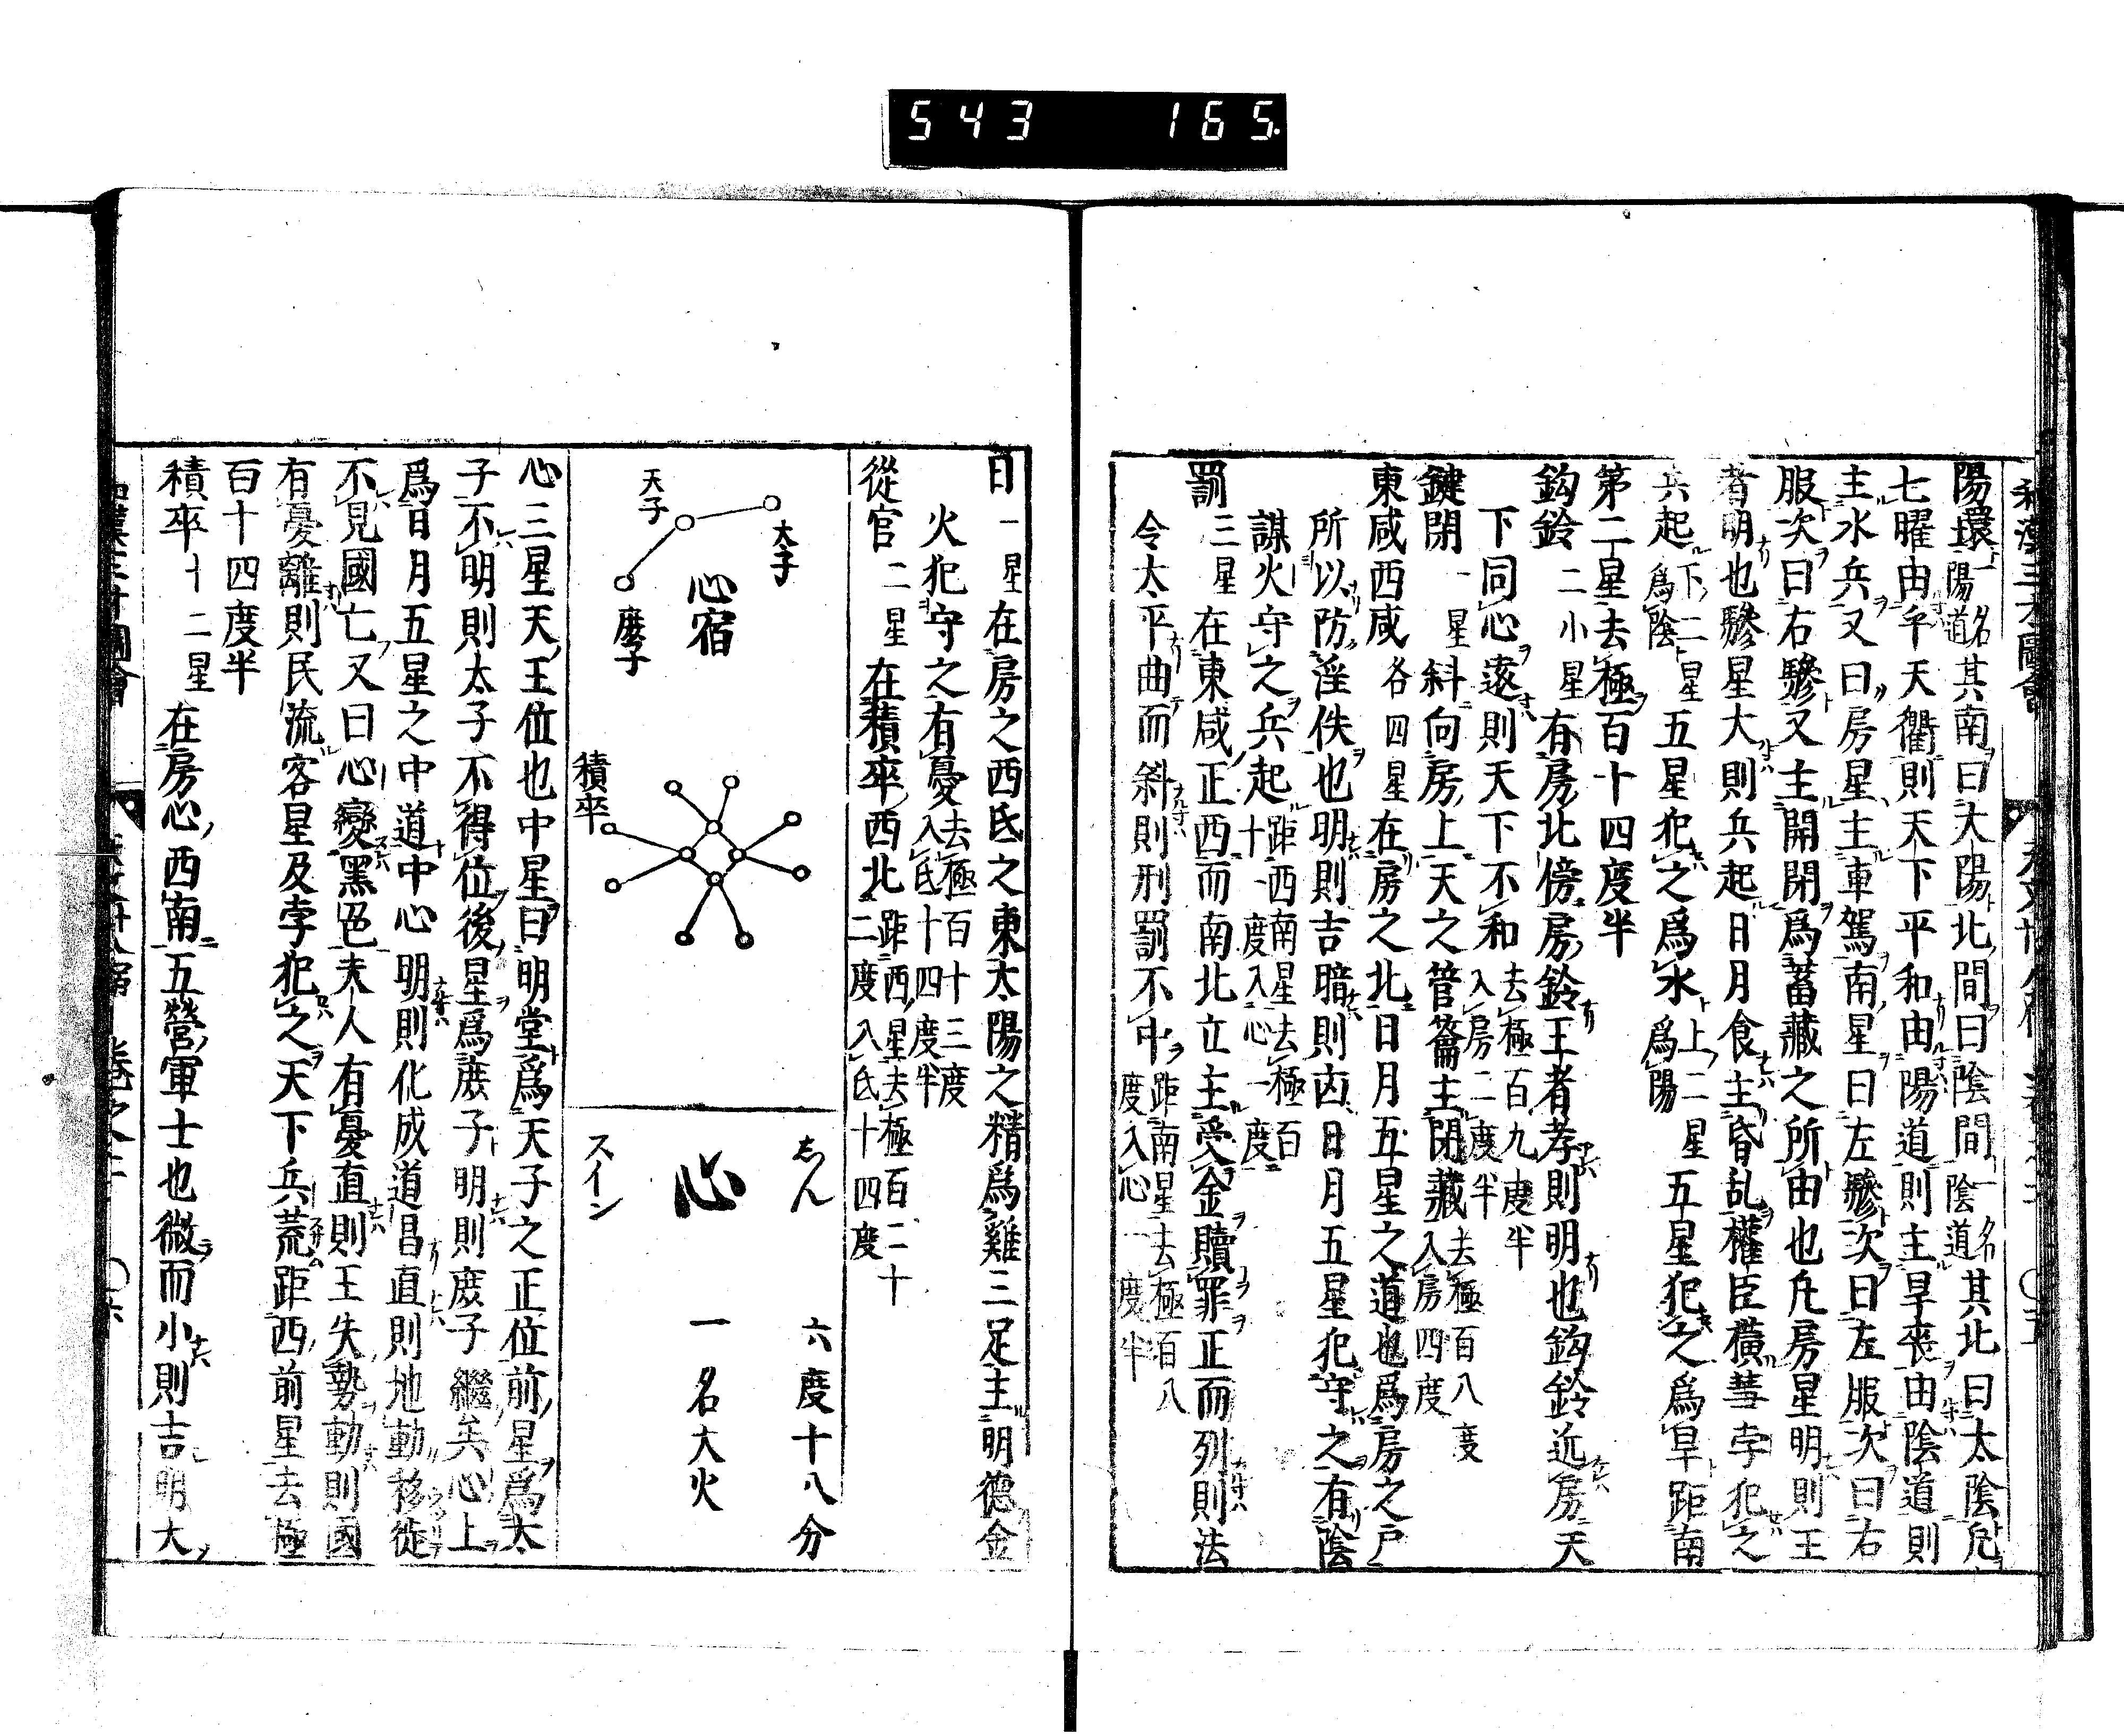 543 165.
陽環一名陽道其南曰太陽北間曰陰間一名陰道其北曰太陰凡
七曜由乎天衢則天下平和由陽道則主旱喪由陰道則
主水兵又曰房星主車駕南星曰左驂次曰左服次曰右
服次曰右驂又主開閉爲蓄藏之所由也凡房星明則王
者明也驂星大則兵起日月食主昏乱權臣橫彗孛犯之
兵起下二星爲陰五星犯之爲水上二星爲陽五星犯之爲旱距南
第二星去極百十四度半
鈎鈴二小星有房北傍房鈴王者孝則明也鈎鈴近房天
下同心遠則天下不和去極百九度半入房二度半
鍵閉一星斜向房上天之管籥主閉藏去極百八度入房四度
東咸西咸各四星在房之北日月五星之道也爲房之戸
所以防淫佚也明則吉暗則凶日月五星犯守之有陰
謀火守之兵起距西南星去極百十一度入心一度
罰三星在東咸正西而南北立主受金贖罪正而列則法
令太平曲而斜則刑罰不中距南星去極百八度入心一度半
日一星在房之西氐之東太陽之精爲雞三足主明德金
火犯守之有憂去極百十三度入氐十四度半
從官二星在積卒西北距西星去極百二十二度入氐十四度
心宿
太子
天子
庶子
積卒
心
しん
スイン
六度十八分
一名大火
心三星天王位也中星曰明堂爲天子之正位前星爲太
子不明則太子不得位後星爲庶子明則庶子繼矣心上
爲日月五星之中道中心明則化成道昌直則地動移徙
不見國亡又曰心變黑色夫人有憂直則王失勢動則國
有憂離則民流客星及孛犯之天下兵荒距西前星去極
百十四度半
積卒十二星在房心西南五營軍士也微而小則吉明大